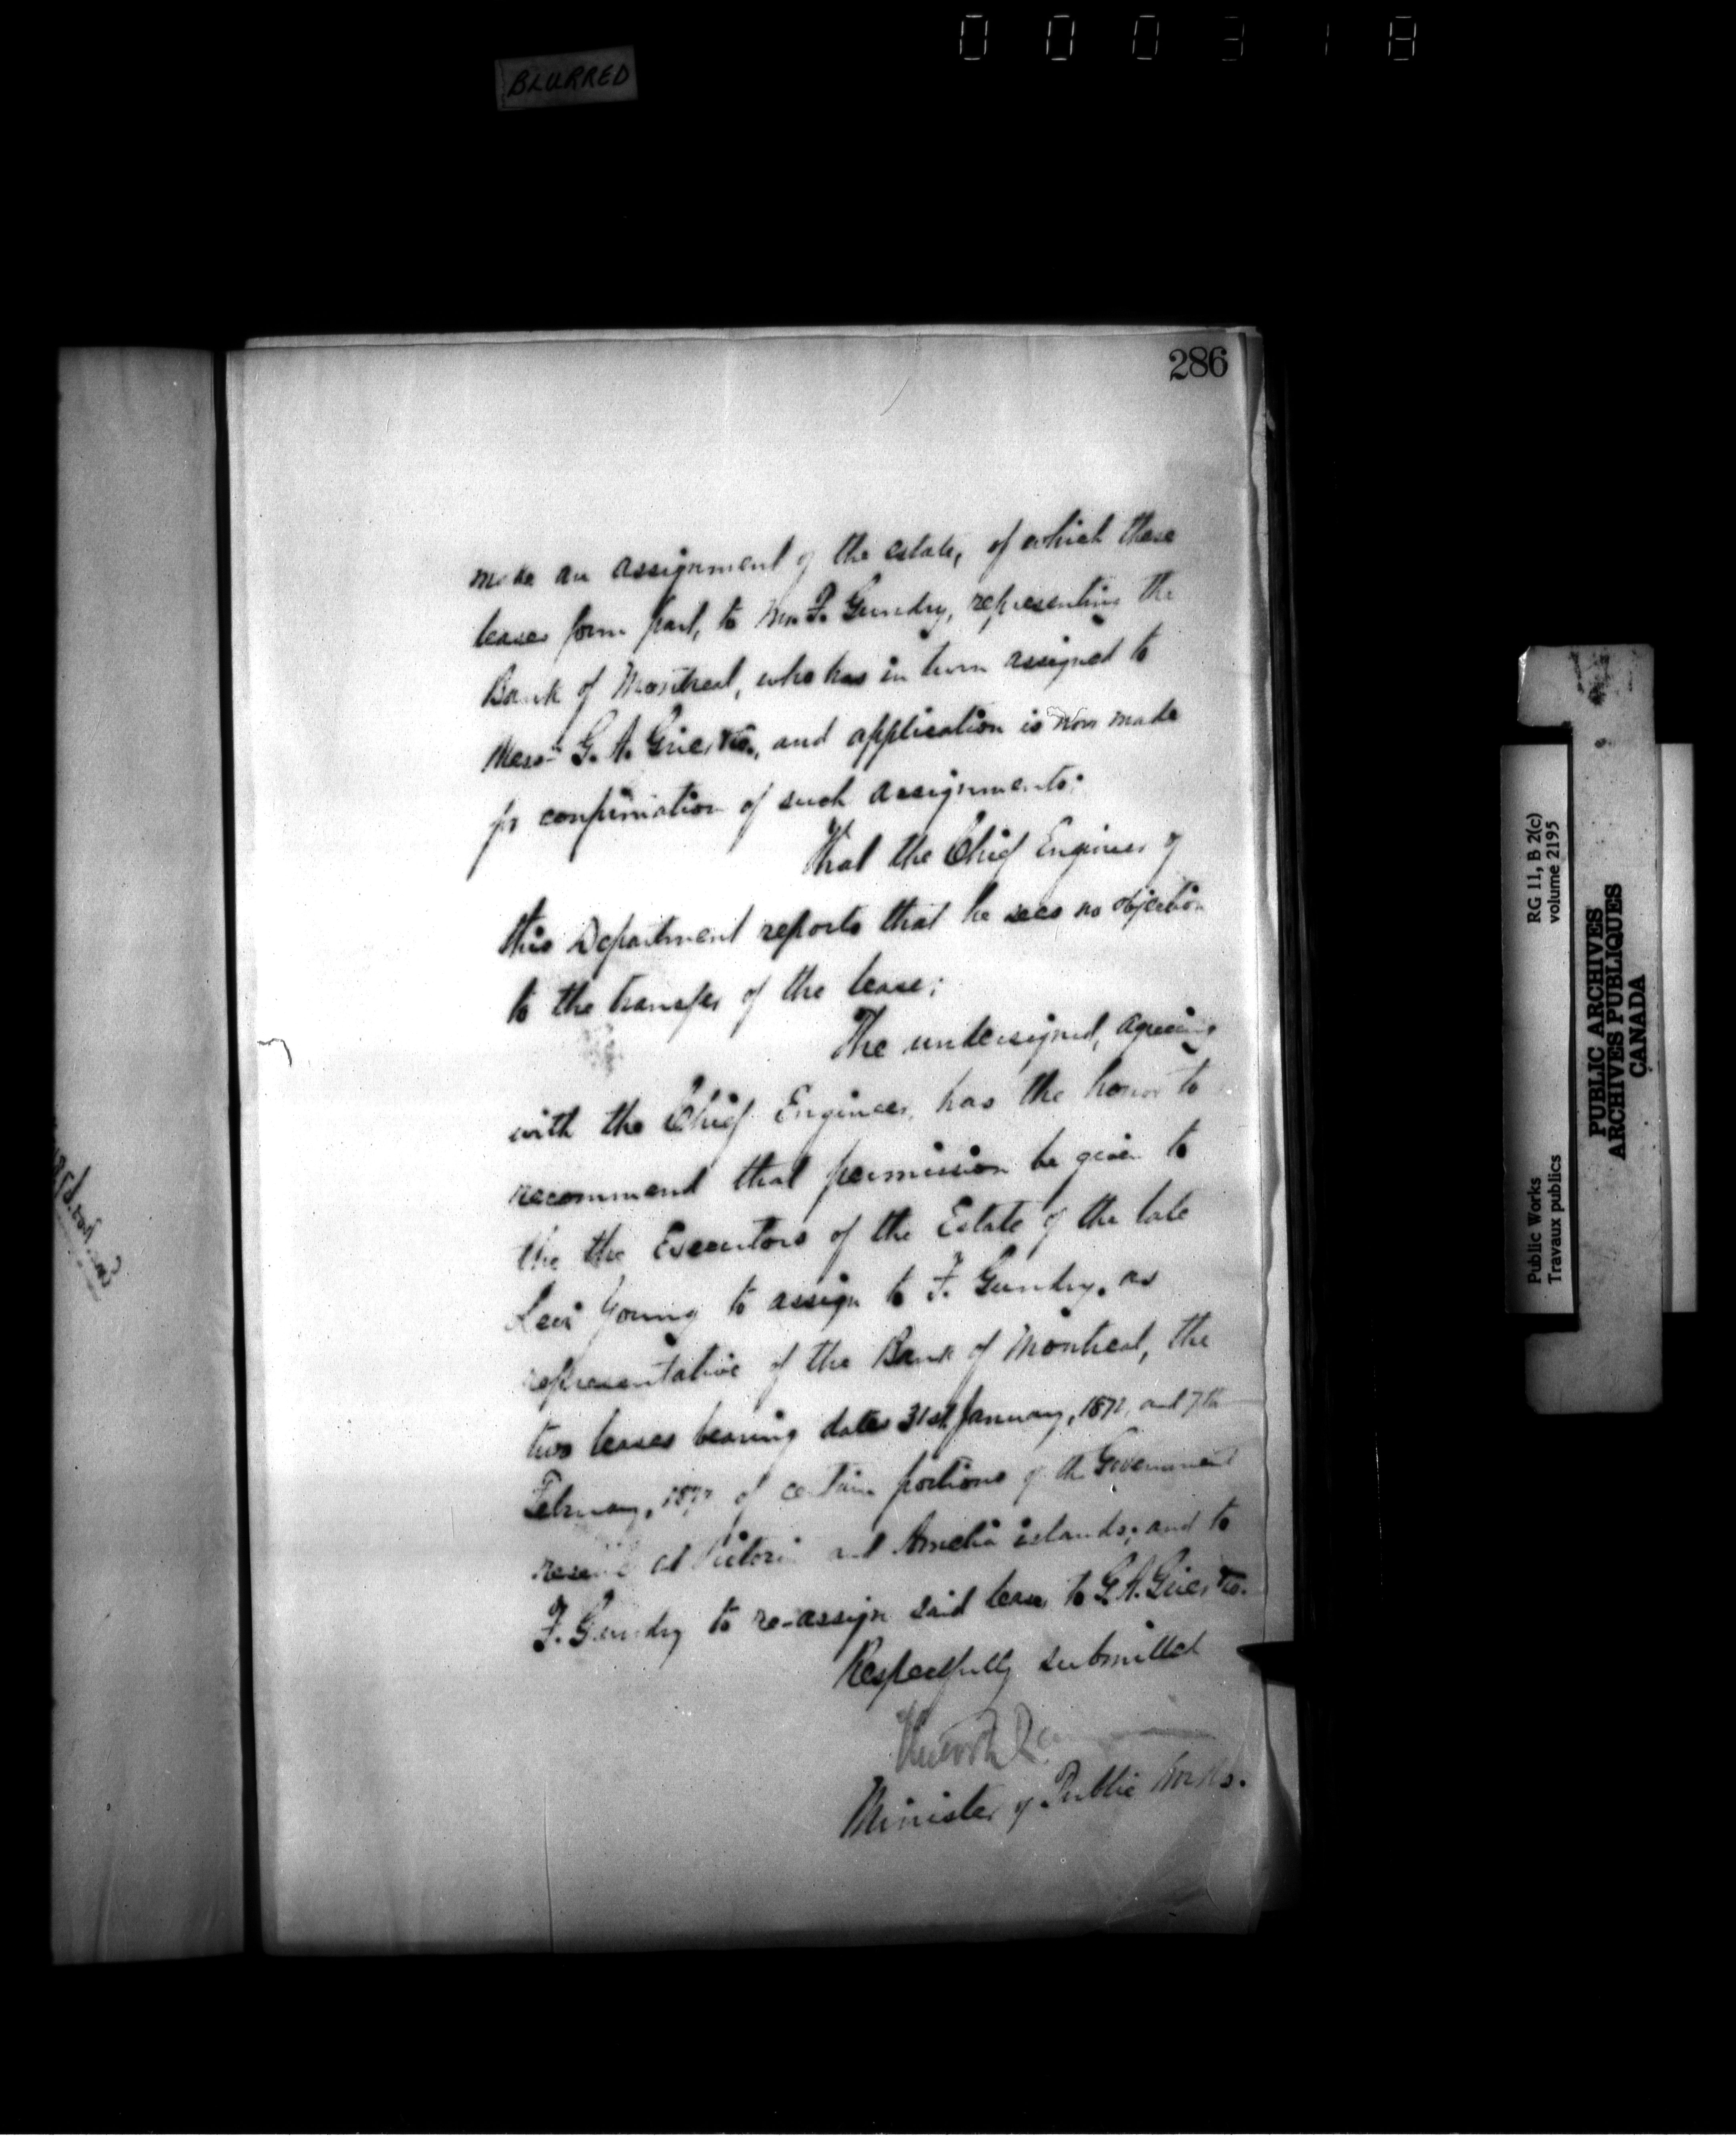 000318
BLURRED
286
make an assignment of the estate, of which these
leases form part, to Mr. F. Gundry, representing the
Bank of Montreal, who has in turn assigned to
Messrs G. A. Grier &Co., and application is now made
for confirmation of such assignments;
That the Chief Engineer of
this Department reports that he sees no objection
to the transfer of the lease;
The undersigned, agreeing
with the Chief Engineer, has the honor to
recommend that permission be given to
the the Executors of the Estate of the late
Levi Young to assign to F. Gundry, as
representative of the Bank of Montreal, the
two leases bearing dates 31st January, and 7th
February, of certain portions of the Government
reserve at Victoria and Amelia islands; and to
F. Gundry to re-assign said leases to G. A. Grier &Co.
Respectfully submitted
Minister of Public Works.
Public Works
Travaux publics
RG 11, B 2(c)
volume 2195
PUBLIC ARCHIVES
ARCHIVES PUBLIQUES
CANADA